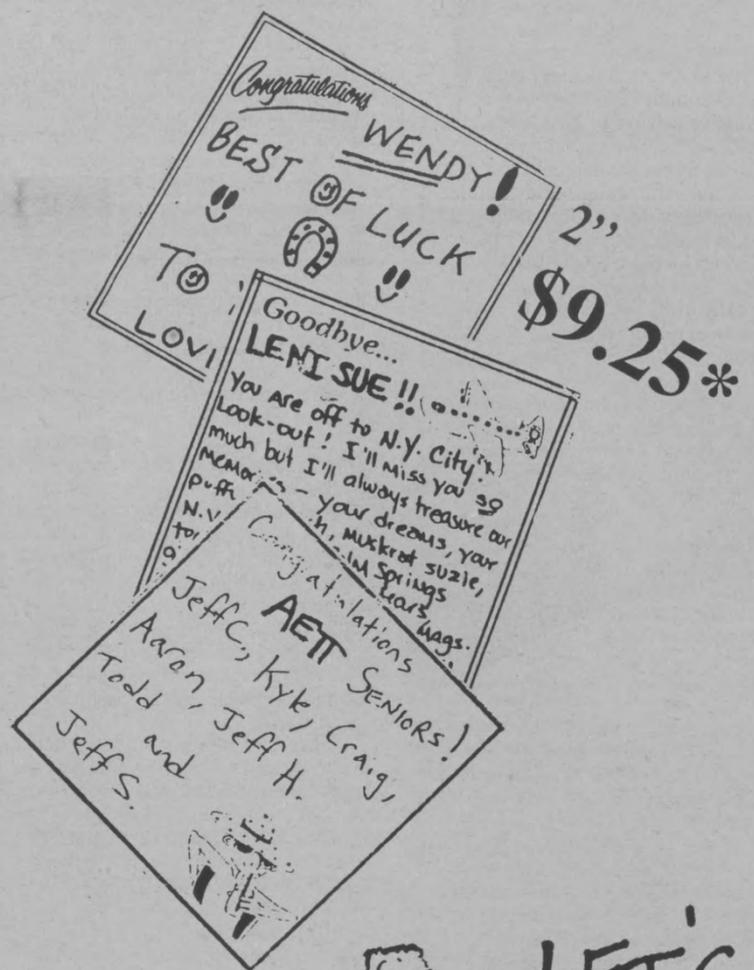 Congratulations
WENDY!
BEST OF LUCK
TO
LOVI
2”
$9.25*
Goodbye...
LENI SUE!!
You are off to N.Y. City!
Look-out! I'll miss you so
much but I'll always treasure our
your dreams, your
puffy
h, Muskrat suzie,
N.Y.
lm Springs
to
ears,
hags.
Congratulations
AEΠ SENIORS!
Jeff C., Kyle, Craig,
Aaron, Jeff H.
Todd and
Jeff S.
LET'S